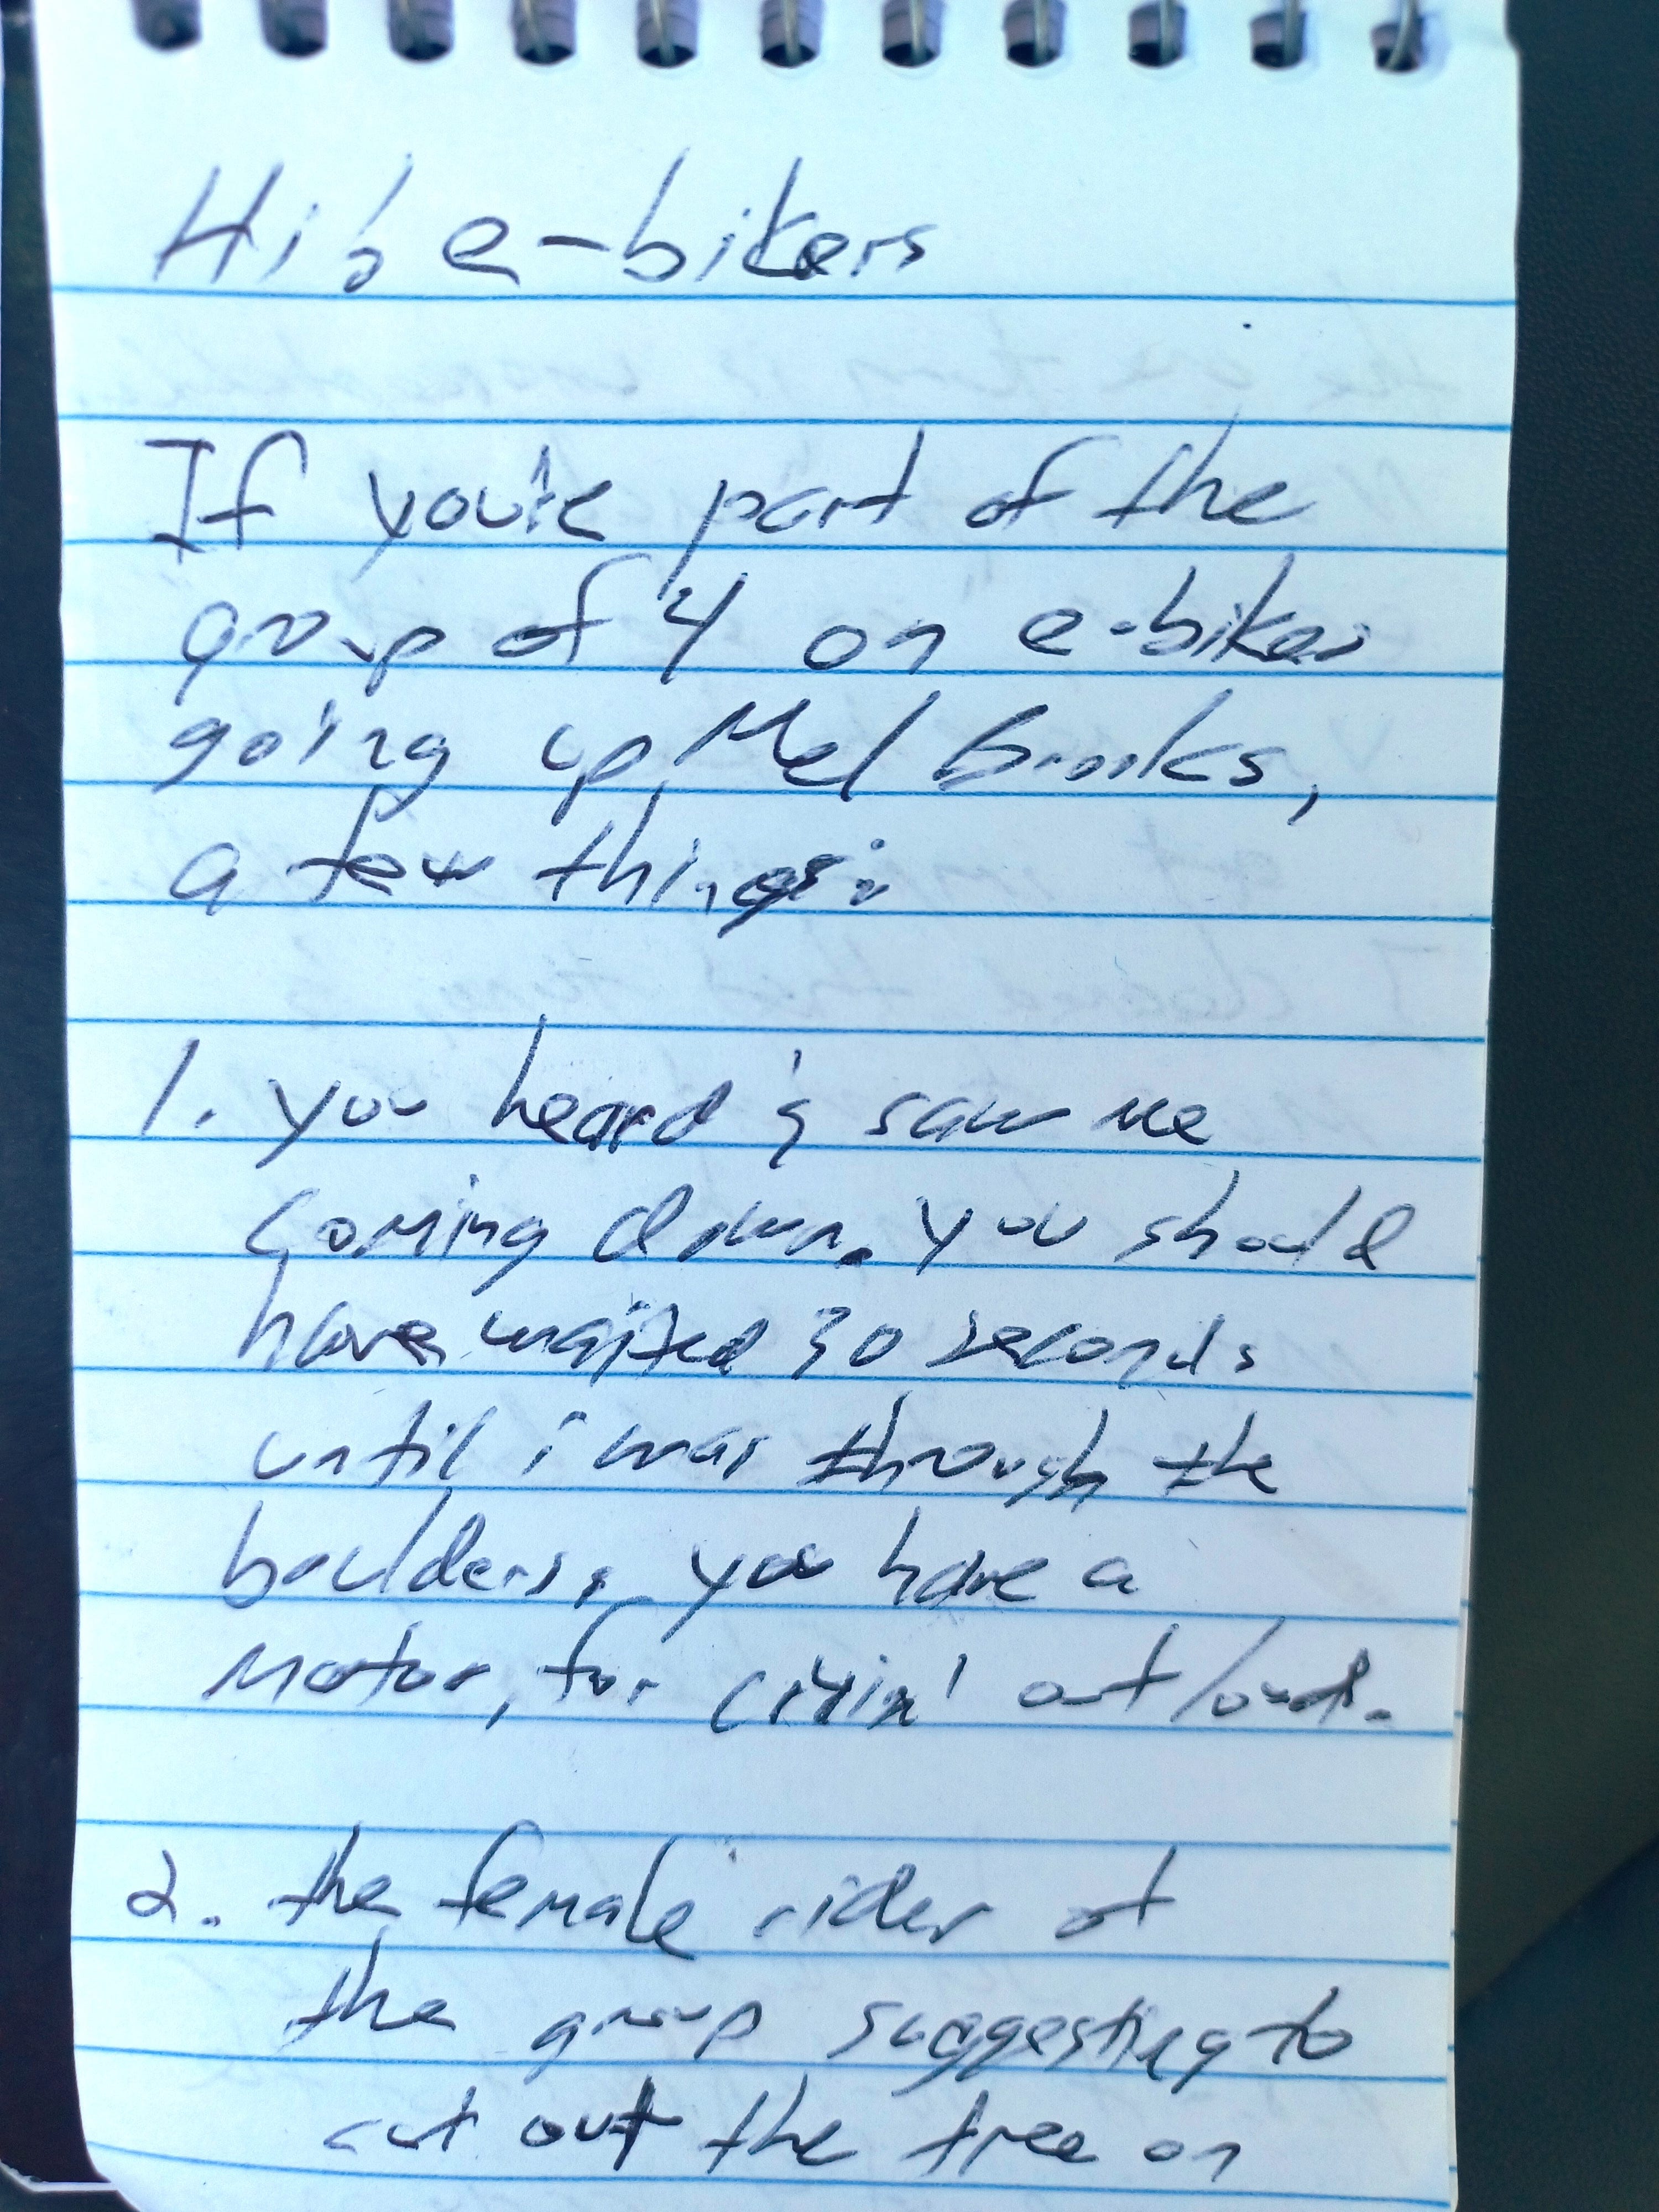 Hi, e-bikers
If you're part of the
group of 4 on e-bikes
going up Mel Brooks,
a few things:
1. you heard & saw me
coming down. you should
have waited 30 seconds
until i was through the
boulders. you have a
motor, for cryin' out loud.
2. the female rider of
the group suggesting to
cut out the tree on